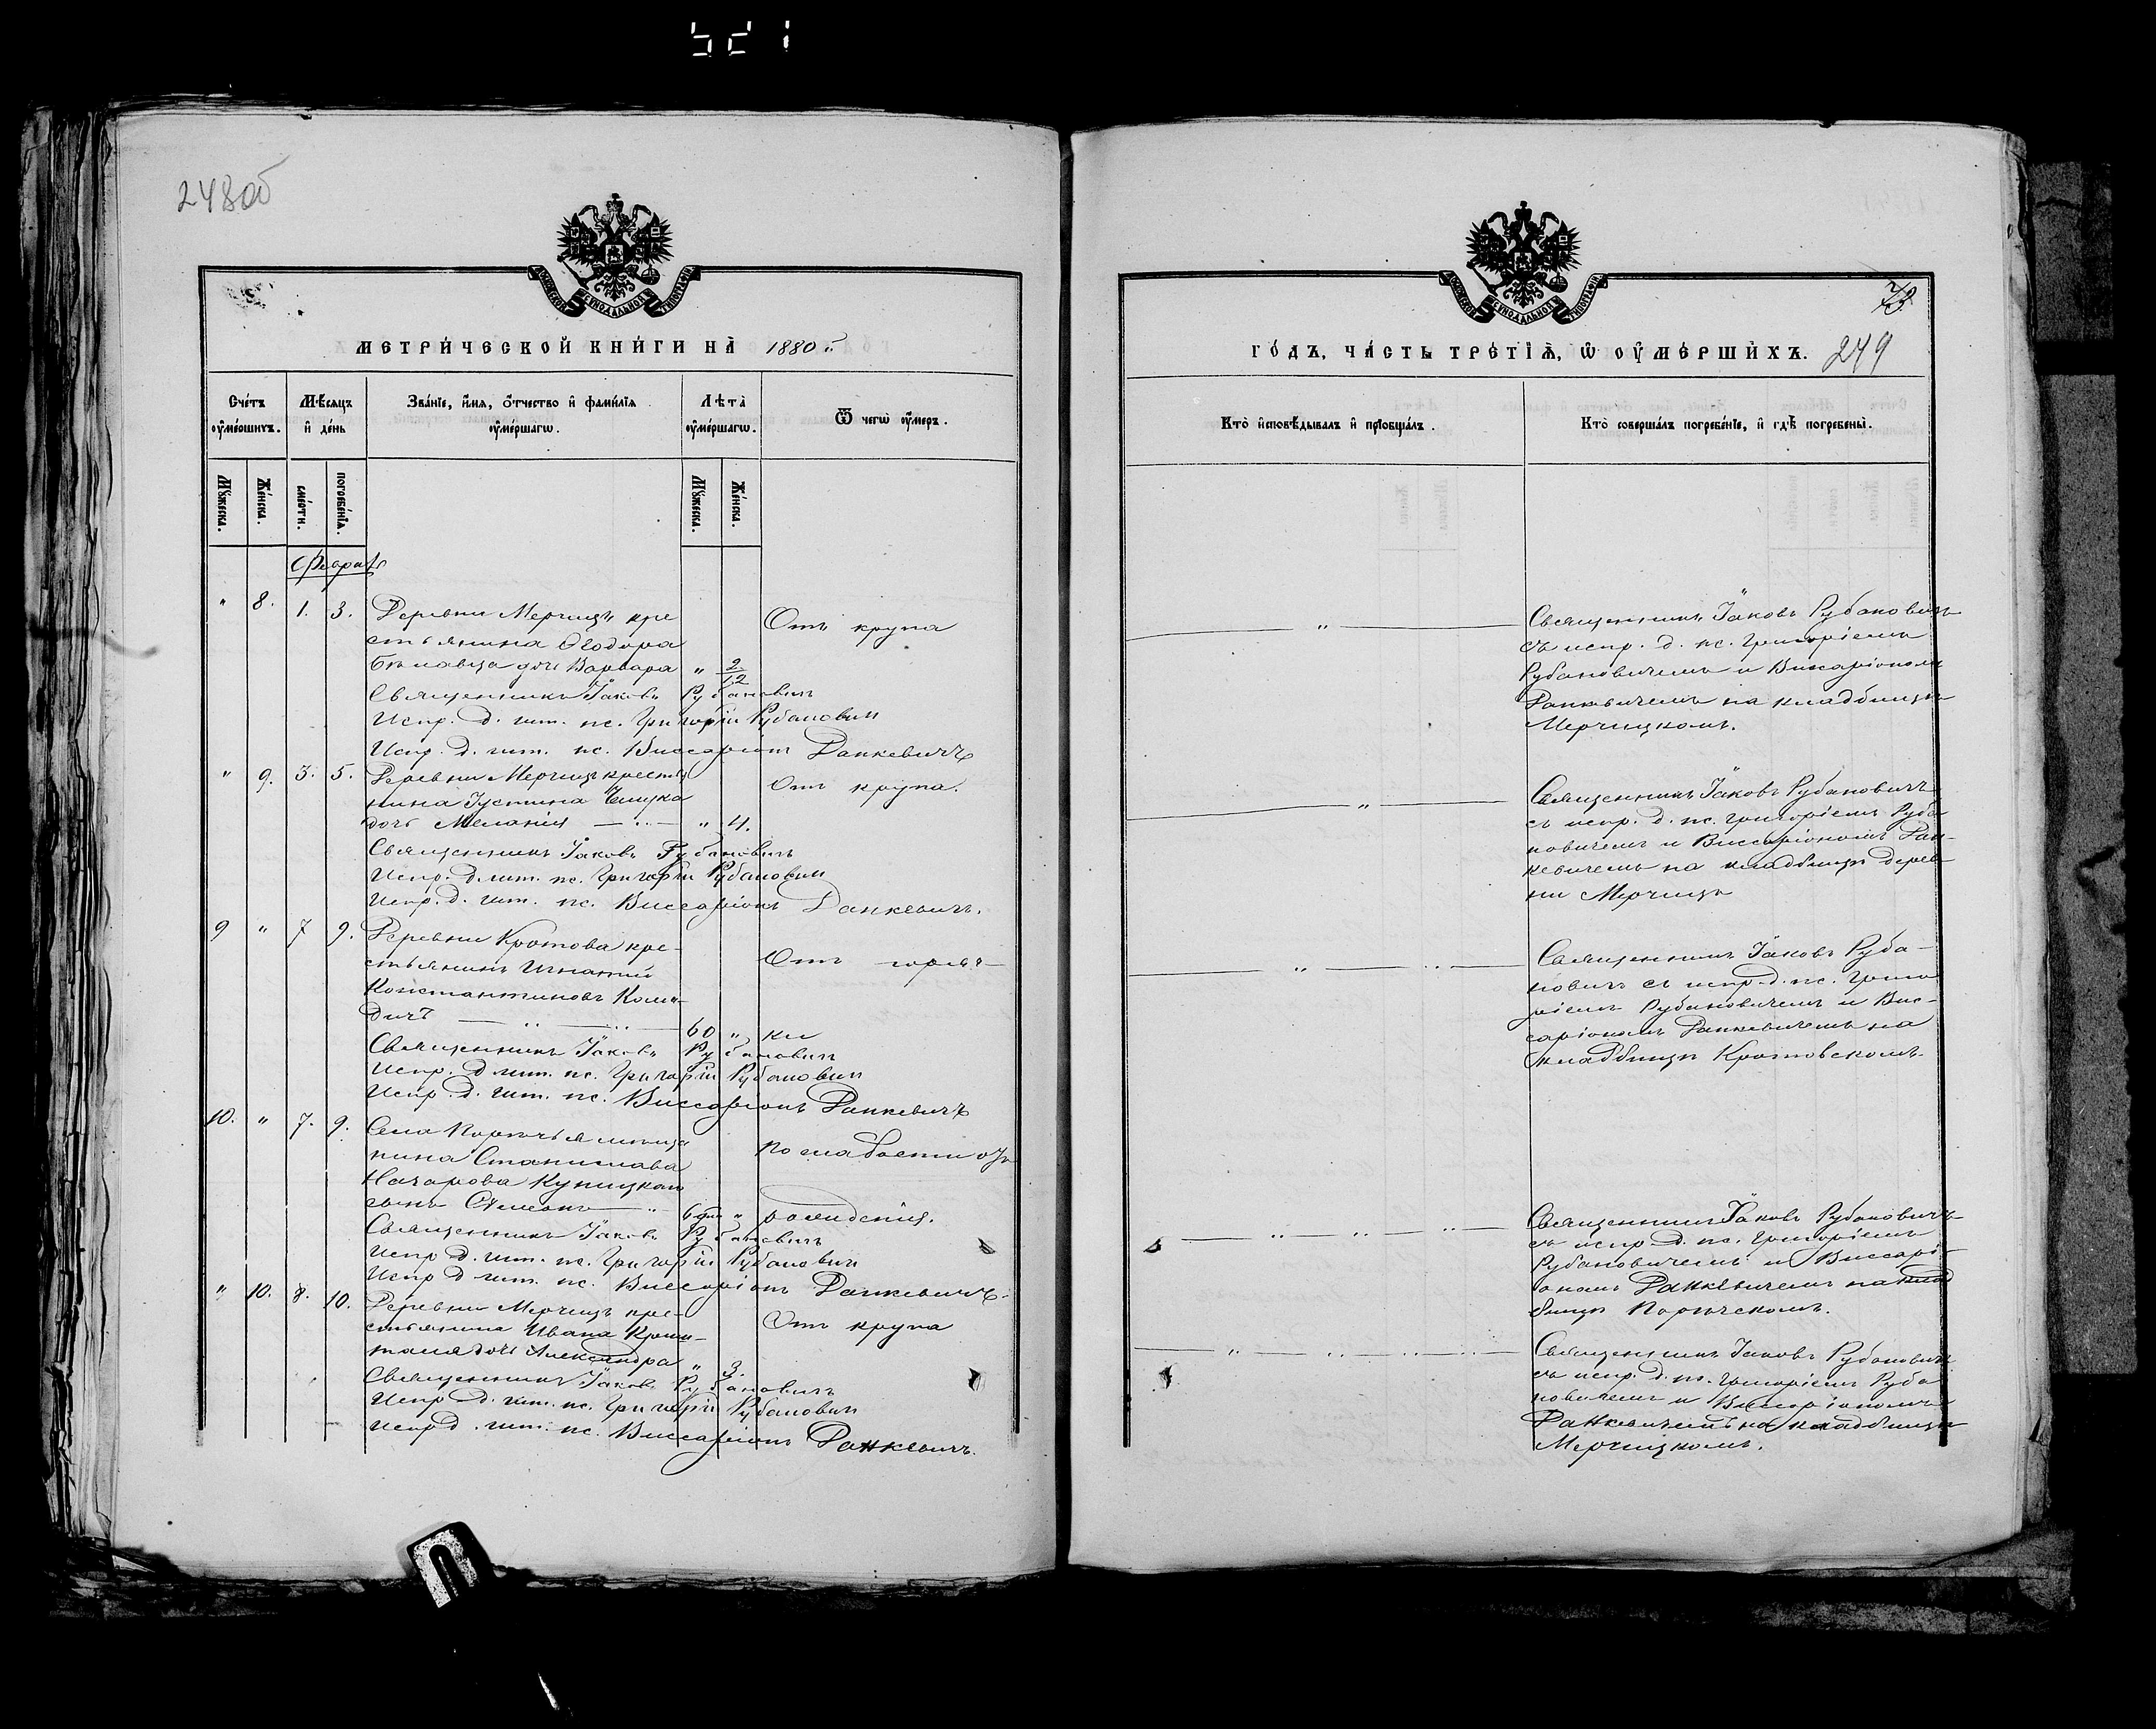 521
248об
МЕТРИЧЕСКОЙ КНИГИ НА 1880 г.
Счетъ умершихъ.
Мѣсяцъ и день
Званіе, имя, отчество и фамилія умершаго.
Лѣта умершаго.
Отъ чего умеръ.
Мужеска.
Женска.
смерти.
погребенія.
Мужеска.
Женска.
Февраль
" 8. 1. 3. Деревни Мерчицъ кре Отъ крупа
стьянина Ѳеодора
дочь Варвара " 2/12
Священникъ Іаковъ Рубановичъ
Испр. д. шт. пс. Григорій Рубановичъ
Испр. д. шт. пс. Виссаріонъ Данкевичъ
" 9. 3. 5. Деревни Мерчицъ кресть Отъ крупа.
нина Іустина
дочь Меланія " 4.
Священникъ Іаковъ Рубановичъ
Испр. д. шт. пс. Григорій Рубановичъ
Испр. д. шт. пс. Виссаріонъ Данкевичъ.
9 " 7 9. Деревни Кротова кре-
стьянинъ Игнатій Отъ горяч-
Константиновъ Кома-
дичъ 60 " ки
Священникъ Іаковъ Рубановичъ
Испр. д. шт. пс. Григорій Рубановичъ
Испр. д. шт. пс. Виссаріонъ Данкевичъ
10. " 7. 9. Села Порѣчья мѣща
нина Станислава По слабости отъ
Назарова Куницкаго
сынъ Симеонъ 6 дней " рожденія.
Священникъ Іаковъ Рубановичъ
Испр. д. шт. пс. Григорій Рубановичъ
Испр. д. шт. пс. Виссаріонъ Данкевичъ.
" 10. 8. 10. Деревни Мерчицъ кре-
стьянина Ивана Отъ крупа
дочь Александра " 3.
Священникъ Іаковъ Рубановичъ
Испр. д. шт. пс. Григорій Рубановичъ
Испр. д. шт. пс. Виссаріонъ Данкевичъ.
73.
ГОДЪ, ЧАСТЬ ТРЕТІЯ, О УМЕРШИХЪ. 249
Кто исповѣдывалъ и пріобщалъ.
Кто совершалъ погребеніе, и гдѣ погребены.
Священникъ Іаковъ Рубановичъ
съ испр. д. пс. Григоріемъ
Рубановичемъ и Висаріономъ
Данкевичемъ на кладбищѣ
Мерчицкомъ.
Священникъ Іаковъ Рубановичъ
съ испр. д. пс. Григоріемъ Руба
новичемъ и Виссаріономъ Дан-
кевичемъ на кладбищѣ дерев
ни Мерчицъ
Священникъ Іаковъ Руба-
новичъ съ испр. д. пс. Григо
ріемъ Рубановичемъ и Вис-
саріономъ Данкевичемъ на
кладбищѣ Кротовскомъ.
Священникъ Іаковъ Рубановичъ
съ испр. д. пс. Григоріемъ
Рубановичемъ и Виссарі-
ономъ Данкевичемъ на клад
бищѣ Порѣчскомъ.
Священникъ Іаковъ Рубановичъ
съ испр. д. пс. Григоріемъ Руба
новичемъ и Виссаріономъ
Данкевичемъ на кладбищѣ
Мерчицкомъ.